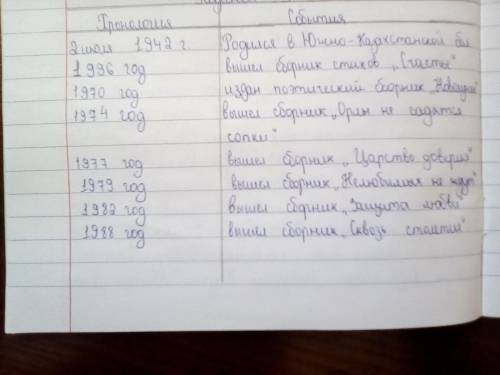 Хронология События
2 июля 1942 г. Родился в Южно-Казахстанской обл
1996 год вышел сборник стихов „Счастье"
1970 год издан поэтический сборник
1974 год вышел сборник „Орлы не садятся
сопки"
1977 год вышел сборник „Царство доверия"
1979 год вышел сборник „Нелюбимых не ждут"
1982 год вышел сборник „Защита любви"
1988 год вышел сборник „Сквозь столетия"